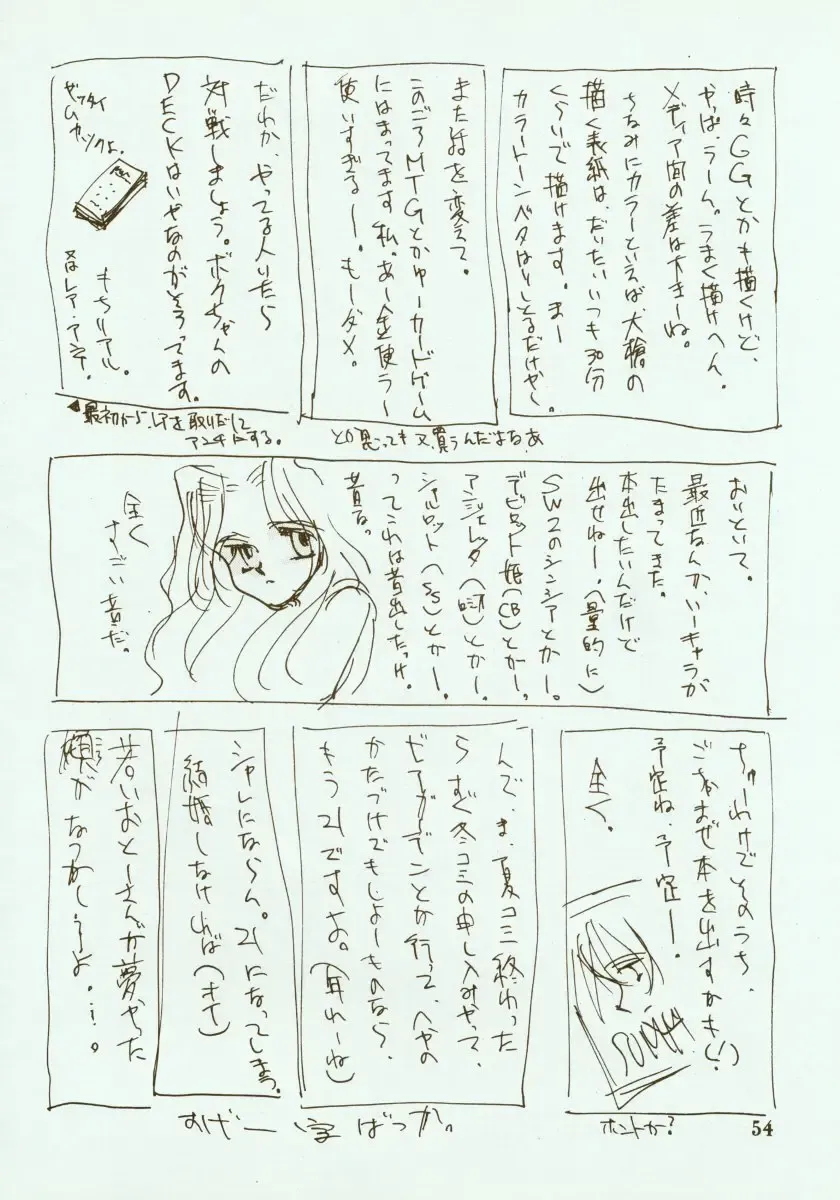 時々GGとかも描くけど、
やっぱ、うーん。うまく描けへん。
メディア間の差は大きーね。
ちなみにカラーといえば、大槍の
描く表紙は、だいたいいつも30分
くらいで描けます。まー
カラートーンベタはりしとるだけやし
また話を変えて。
このごろMTGとかゆーカードゲーム
にはまってます私。あー金使うー
使いすぎるー。もーダメ。
とか思っても又、買うんだよなあ
だれか、やってる人いたら
対戦しましょう。ボクちゃんの
DECKはいやなのがそろってます。
ぜったい
ムカックよ。
もちリアル。
はレア・アンテ。
◀最初からレアを取りだして
アンテにする。
おいといて。
最近なんか、いーキャラが
たまってきた。
本出したいんだけど
出せねー。(量的に)
SW2のシンシアとかー。
デビロット姫(CB)とかー。
アンジェレッタ()とかー。
シャルロット(SS)とかー。
ってこれは昔出したっけ。
昔な。
全く
すごい昔だ。
ちゅーわけでそのうち、
ごちゃまぜ本を出すかも(!)
予定ね、予定ー。
全く。
ホントか?
んで、ま、夏コミ終わった
らすぐ冬コミの申し込みやって、
ビアガーデンとか行って、へやの
かたづけでもしよーものなら、
もう21ですな。(早わーね)
シャレにならん。21になってしまう。
結婚しなければ(オイ)
若いおとーさんが夢やった
頃がなつかしーよ。…。
おげー 字ばっか。
54